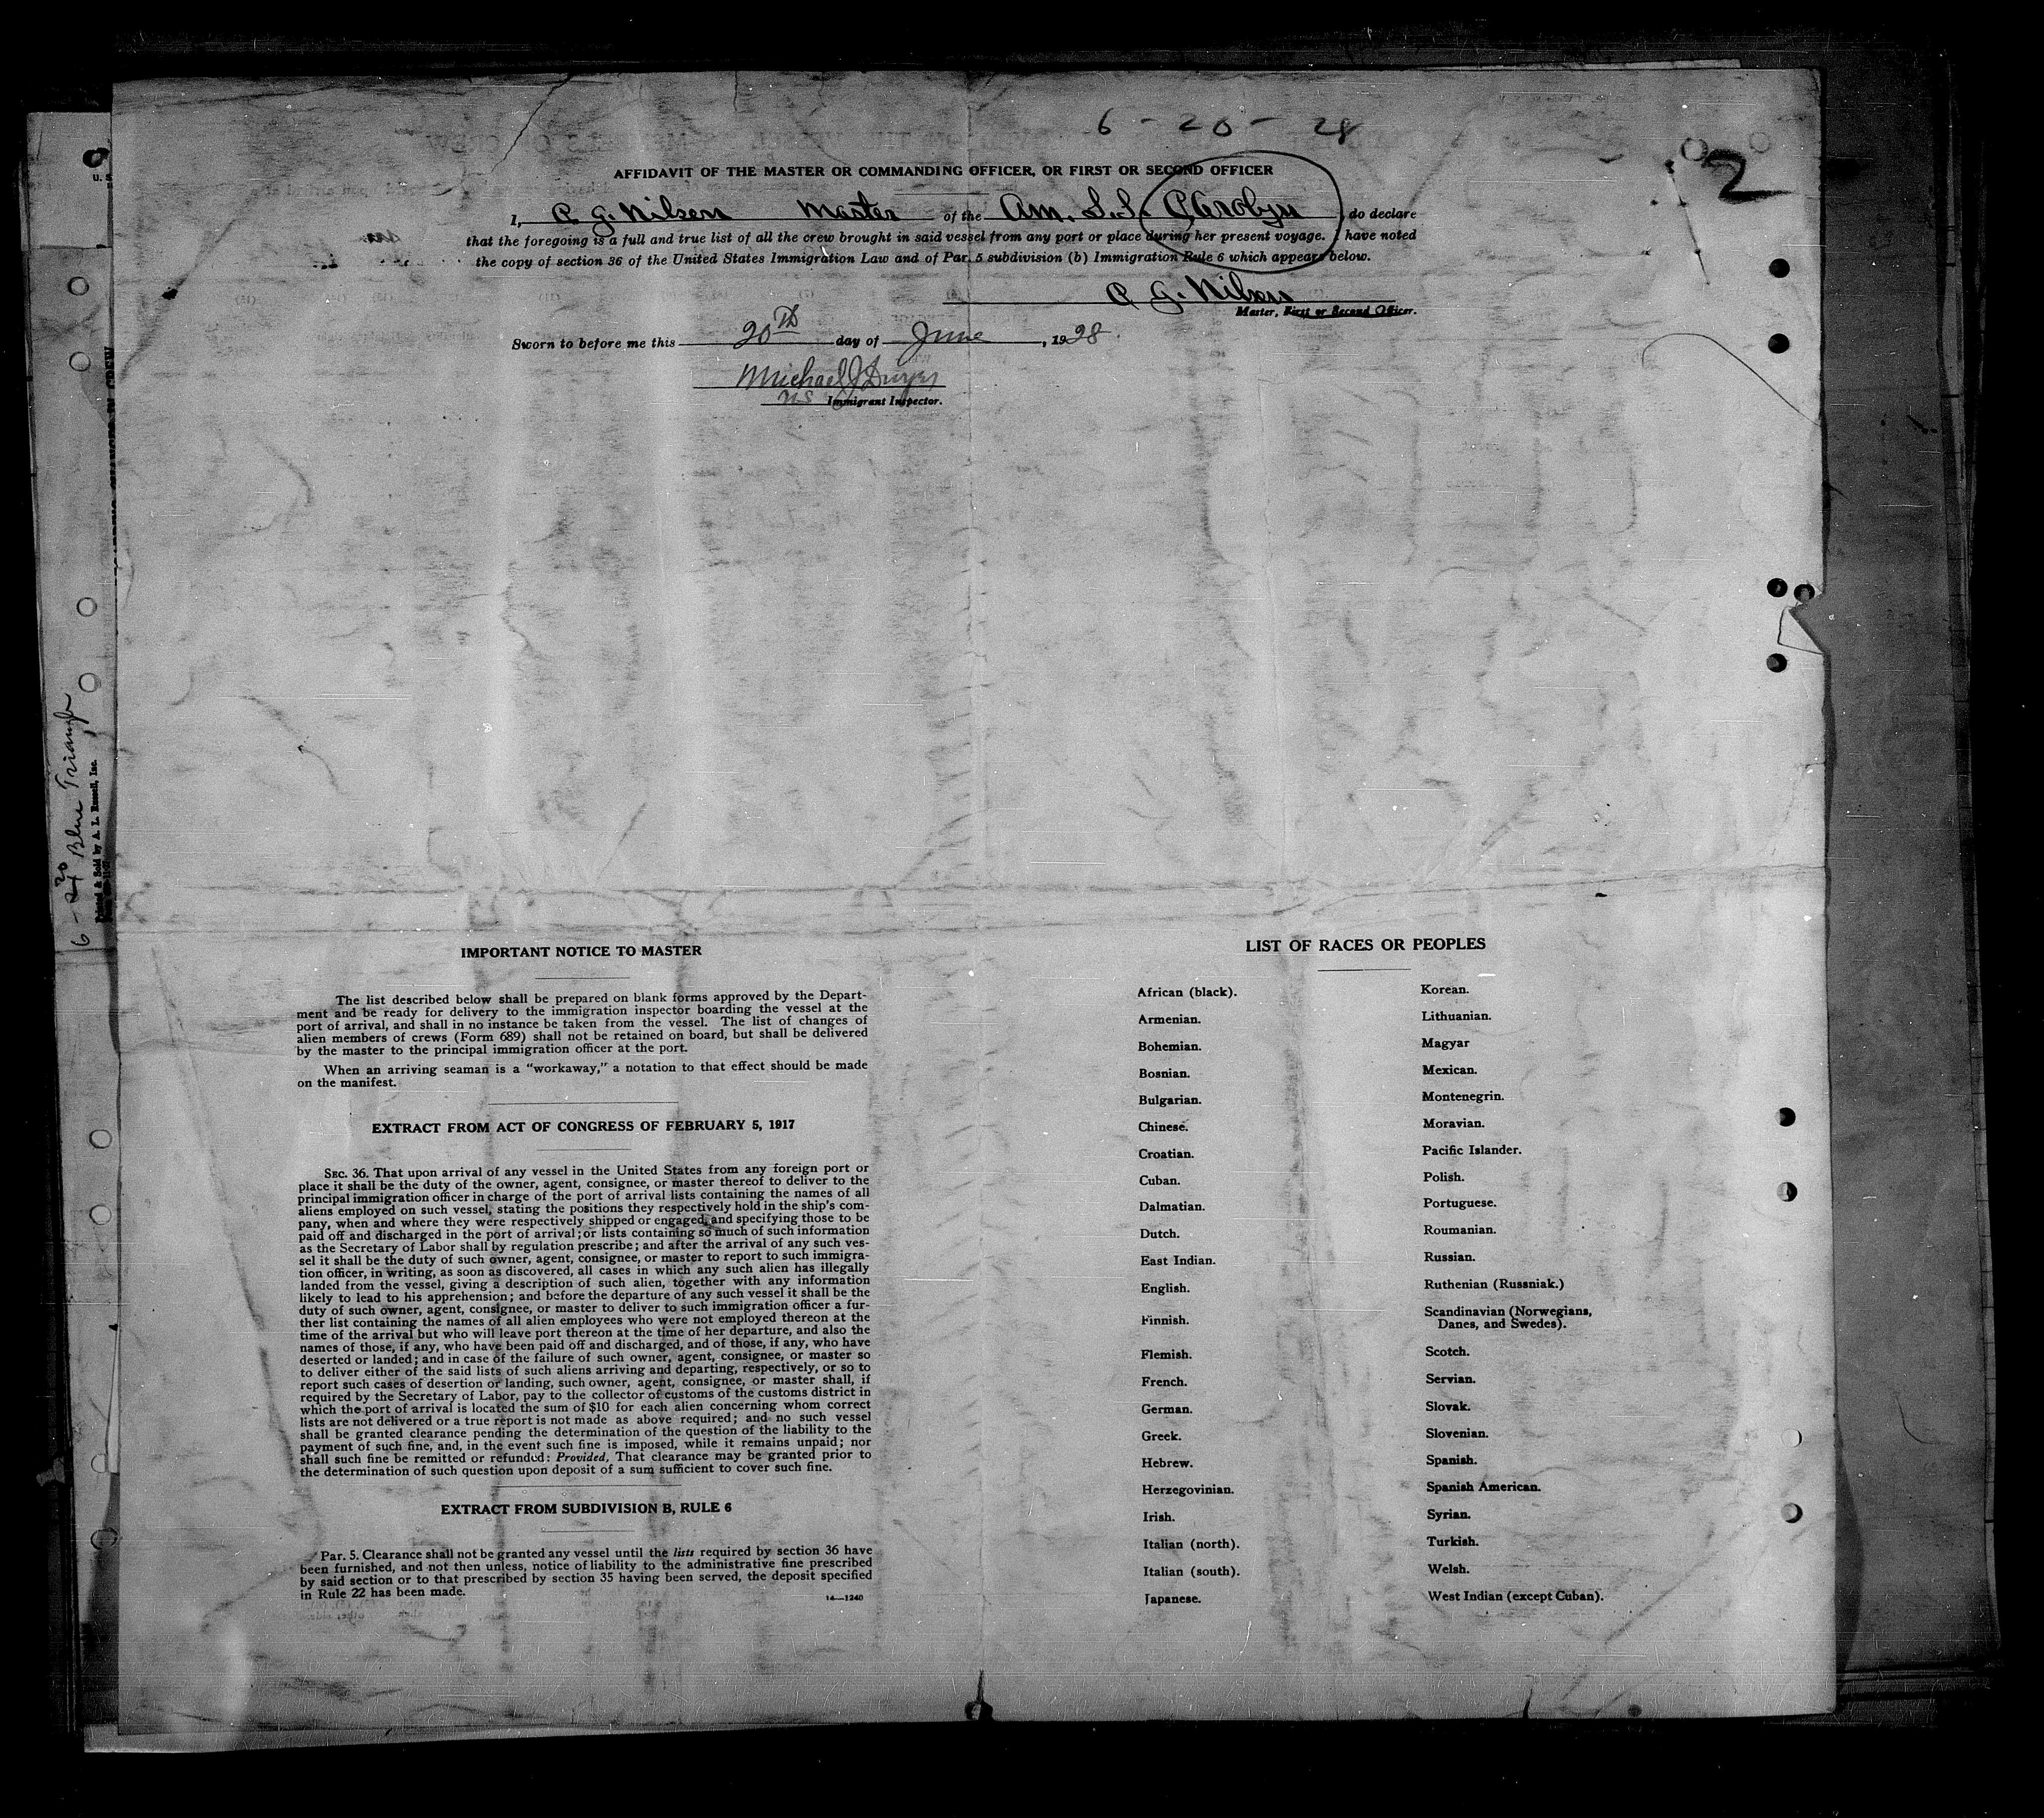 6 - 20 - 28
2
AFFIDAVIT OF THE MASTER OR COMMANDING OFFICER, OR FIRST OR SECOND OFFICER
I, C G. Nilsen Master of the Am. S.S. Carolyn, do declare
that the foregoing is a full and true list of all the crew brought in said vessel from any port or place during her present voyage. I have noted
the copy of section 36 of the United States Immigration Law and of Par. 5 subdivision (b) Immigration Rule 6 which appears below.
C G. Nilsen
Master, First or Second Officer.
Sworn to before me this 20th day of June, 1928
Michael J Dwyer
US Immigrant Inspector.
6 - 20 Blue Triangle
Printed & Sold by A. L. Russell, Inc.
IMPORTANT NOTICE TO MASTER
The list described below shall be prepared on blank forms approved by the Depart-
ment and be ready for delivery to the immigration inspector boarding the vessel at the
port of arrival, and shall in no instance be taken from the vessel. The list of changes of
alien members of crews (Form 689) shall not be retained on board, but shall be delivered
by the master to the principal immigration officer at the port.
When an arriving seaman is a "workaway," a notation to that effect should be made
on the manifest.
EXTRACT FROM ACT OF CONGRESS OF FEBRUARY 5, 1917
SEC. 36. That upon arrival of any vessel in the United States from any foreign port or
place it shall be the duty of the owner, agent, consignee, or master thereof to deliver to the
principal immigration officer in charge of the port of arrival lists containing the names of all
aliens employed on such vessel, stating the positions they respectively hold in the ship's com-
pany, when and where they were respectively shipped or engaged, and specifying those to be
paid off and discharged in the port of arrival; or lists containing so much of such information
as the Secretary of Labor shall by regulation prescribe; and after the arrival of any such ves-
sel it shall be the duty of such owner, agent, consignee, or master to report to such immigra-
tion officer, in writing, as soon as discovered, all cases in which any such alien has illegally
landed from the vessel, giving a description of such alien, together with any information
likely to lead to his apprehension; and before the departure of any such vessel it shall be the
duty of such owner, agent, consignee, or master to deliver to such immigration officer a fur-
ther list containing the names of all alien employees who were not employed thereon at the
time of the arrival but who will leave port thereon at the time of her departure, and also the
names of those, if any, who have been paid off and discharged, and of those, if any, who have
deserted or landed; and in case of the failure of such owner, agent, consignee, or master so
to deliver either of the said lists of such aliens arriving and departing, respectively, or so to
report such cases of desertion or landing, such owner, agent, consignee, or master shall, if
required by the Secretary of Labor, pay to the collector of customs of the customs district in
which the port of arrival is located the sum of $10 for each alien concerning whom correct
lists are not delivered or a true report is not made as above required; and no such vessel
shall be granted clearance pending the determination of the question of the liability to the
payment of such fine, and, in the event such fine is imposed, while it remains unpaid; nor
shall such fine be remitted or refunded: Provided, That clearance may be granted prior to
the determination of such question upon deposit of a sum sufficient to cover such fine.
EXTRACT FROM SUBDIVISION B, RULE 6
Par. 5. Clearance shall not be granted any vessel until the lists required by section 36 have
been furnished, and not then unless, notice of liability to the administrative fine prescribed
by said section or to that prescribed by section 35 having been served, the deposit specified
in Rule 22 has been made.
14—1240
LIST OF RACES OR PEOPLES
African (black).
Armenian.
Bohemian.
Bosnian.
Bulgarian.
Chinese.
Croatian.
Cuban.
Dalmatian.
Dutch.
East Indian.
English.
Finnish.
Flemish.
French.
German.
Greek.
Hebrew.
Herzegovinian.
Irish.
Italian (north).
Italian (south).
Japanese.
Korean.
Lithuanian.
Magyar
Mexican.
Montenegrin.
Moravian.
Pacific Islander.
Polish.
Portuguese.
Roumanian.
Russian.
Ruthenian (Russniak.)
Scandinavian (Norwegians,
Danes, and Swedes).
Scotch.
Servian.
Slovak.
Slovenian.
Spanish.
Spanish American.
Syrian.
Turkish.
Welsh.
West Indian (except Cuban).